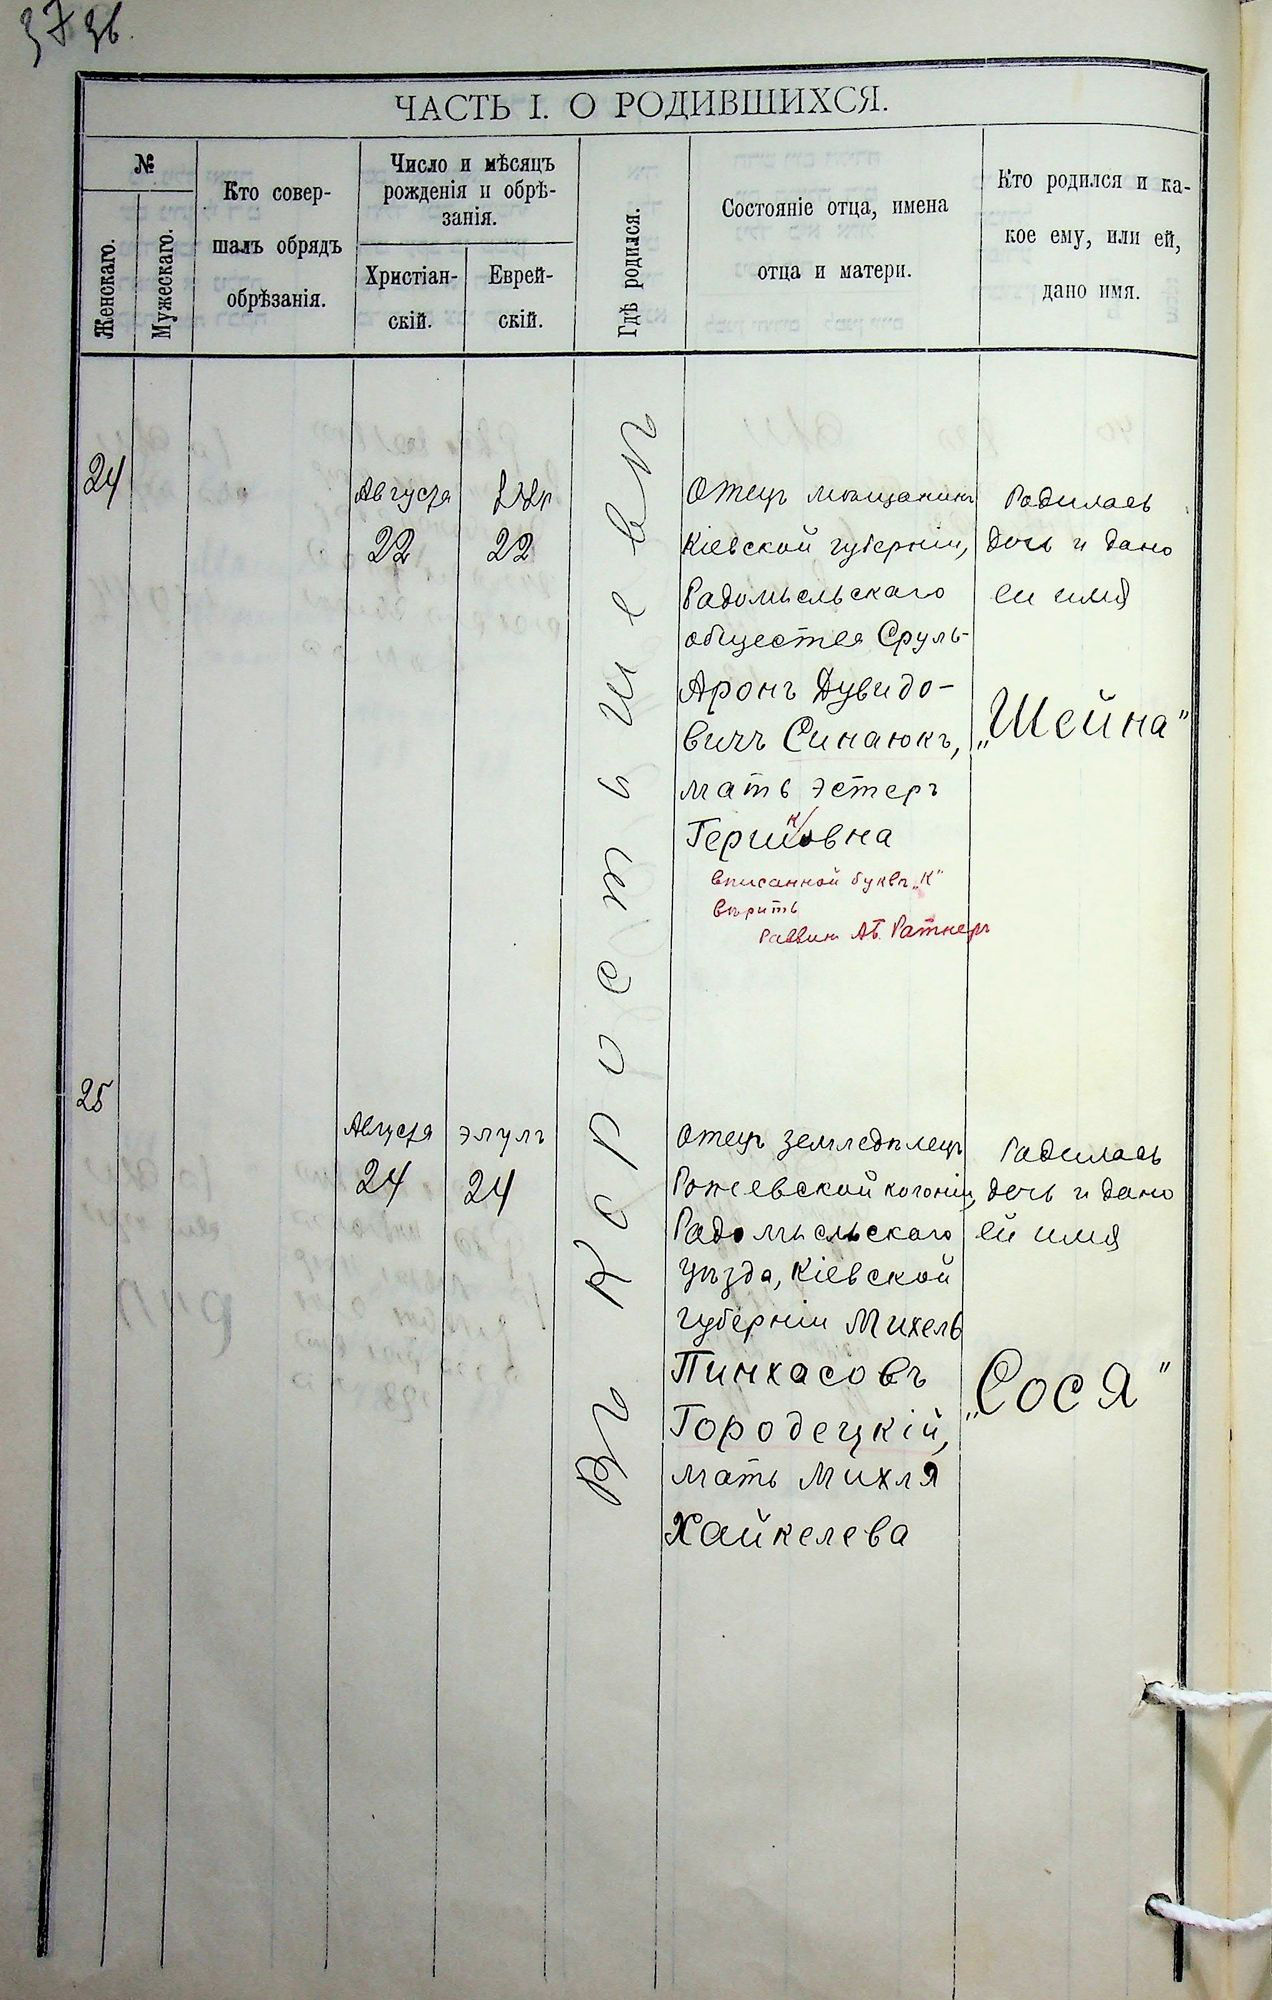 37 36.
ЧАСТЬ I. О РОДИВШИХСЯ.
№
Женскаго.
Мужескаго.
Кто совер-
шалъ обрядъ
обрѣзанія.
Число и мѣсяцъ
рожденія и обрѣ-
занія.
Христіан-
скій.
Еврей-
скій.
Гдѣ родился.
Состояніе отца, имена
отца и матери.
Кто родился и ка-
кое ему, или ей,
дано имя.
Въ Коростышевѣ
24
Августа
22
22
Отецъ мѣщанинъ
Кіевской губерніи,
Радомысльскаго
общества Сруль-
Аронъ Дувидо-
вичъ Синаюкъ,
мать Эстеръ
Гершковна
вписанной буквѣ „К"
вѣрить
Раввинъ Аб. Ратнеръ
Родилась
дочь и дано
ей имя
„Шейна"
25
Августа
24
Элулъ
24
Отецъ земледѣлецъ
Рожевской колоніи,
Радомысльскаго
уѣзда, Кіевской
губерніи Михель
Пинхасовъ
Городецкій,
мать Михля
Хайкелева
Родилась
дочь и дано
ей имя
„Сося"